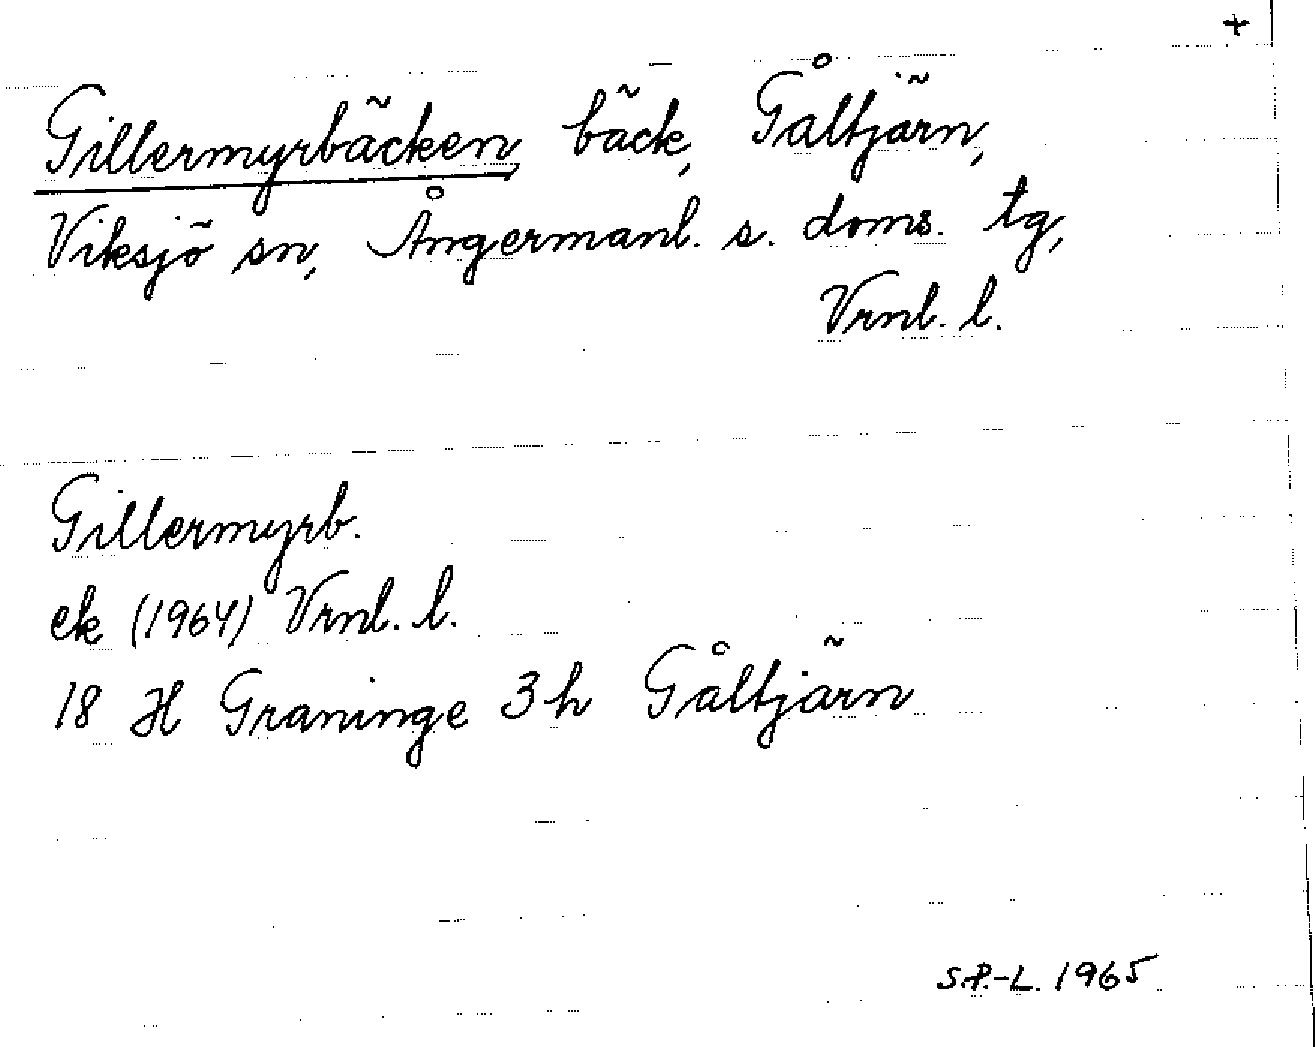 +
Gillermyrbäcken, bäck, Gåltjärn,
Viksjö sn, Ångermanl. s. doms. tg,
Vrnl. l.
Gillermyrb.
ek (1964) Vrnl. l.
18 H Graninge 3h Gåltjärn
S.P.-L. 1965